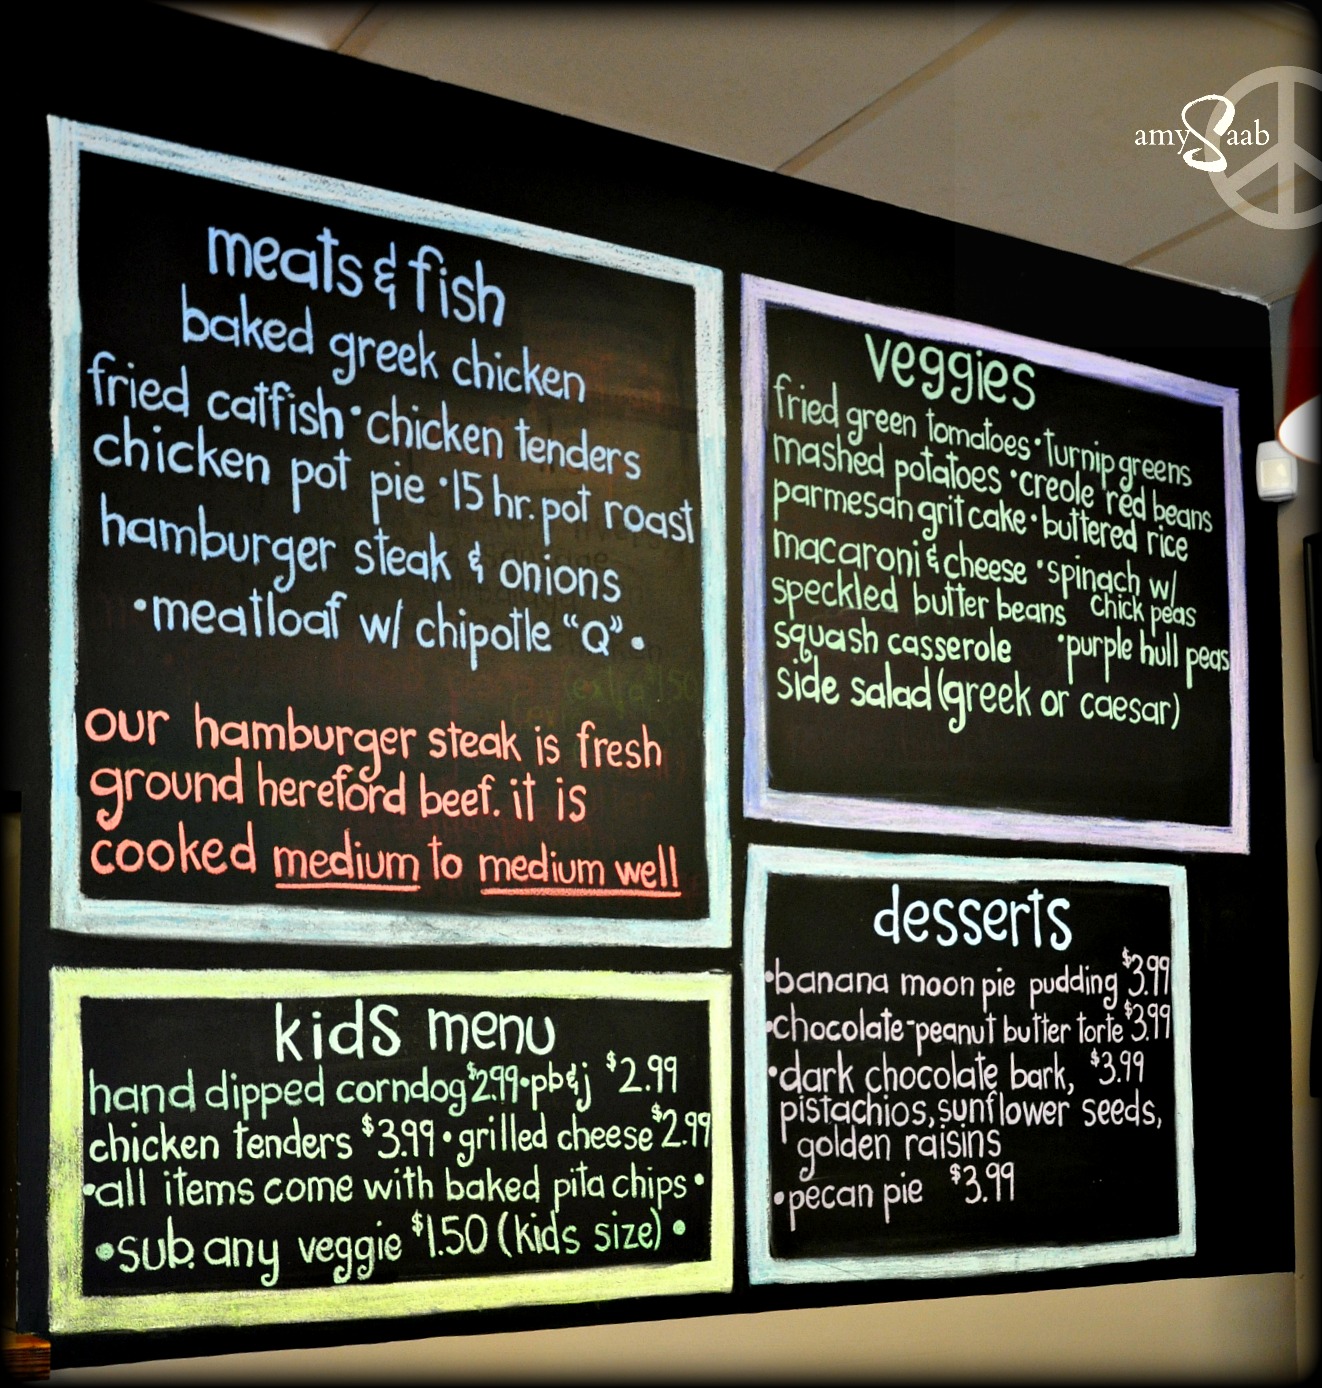 amy Saab
meats & fish
baked greek chicken
fried catfish • chicken tenders
chicken pot pie • 15 hr. pot roast
hamburger steak & onions
• meatloaf w/ chipotle "Q" •
our hamburger steak is fresh
ground hereford beef. it is
cooked medium to medium well
veggies
fried green tomatoes • turnip greens
mashed potatoes • creole red beans
parmesan grit cake • buttered rice
macaroni & cheese • spinach w/
speckled butter beans chick peas
squash casserole • purple hull peas
side salad (greek or caesar)
kids menu
hand dipped corndog $2.99 • pb&j $2.99
chicken tenders $3.99 • grilled cheese $2.99
• all items come with baked pita chips •
• sub. any veggie $1.50 (kids size) •
desserts
• banana moon pie pudding $3.99
• chocolate-peanut butter torte $3.99
• dark chocolate bark, $3.99
pistachios, sunflower seeds,
golden raisins
• pecan pie $3.99